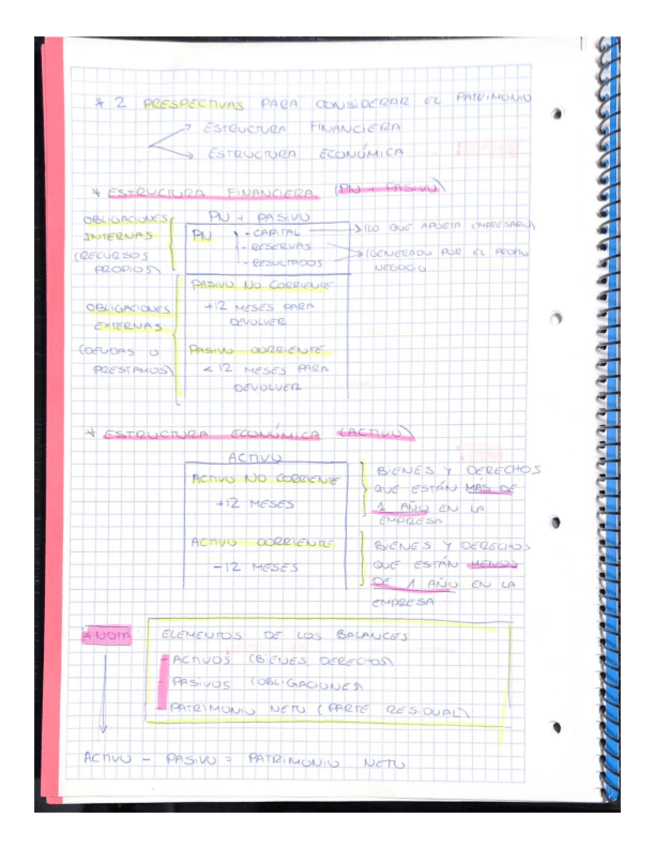 * 2 PRESPECTIVAS PARA CONSIDERAR EL PATRIMONIO
ESTRUCTURA FINANCIERA
ESTRUCTURA ECONÓMICA
* ESTRUCTURA FINANCIERA (PN + PASIVO)
PN + PASIVO
OBLIGACIONES INTERNAS
(RECURSOS PROPIOS)
PN
- CAPITAL → (LO QUE APORTA EMPRESARIO)
- RESERVAS → (GENERADO POR EL PROPIO NEGOCIO
- RESULTADOS
OBLIGACIONES EXTERNAS
(DEUDAS O PRESTAMOS)
PASIVO NO CORRIENTE
+12 MESES PARA
DEVOLVER
PASIVO CORRIENTE
< 12 MESES PARA
DEVOLVER
* ESTRUCTURA ECONÓMICA (ACTIVO)
ACTIVO
ACTIVO NO CORRIENTE
+12 MESES
BIENES Y DERECHOS
QUE ESTÁN MÁS DE
1 AÑO EN LA
EMPRESA
ACTIVO CORRIENTE
-12 MESES
BIENES Y DERECHOS
QUE ESTÁN MENOS
DE 1 AÑO EN LA
EMPRESA
* NOTA
ELEMENTOS DE LOS BALANCES
- ACTIVOS (BIENES, DERECHOS)
- PASIVOS (OBLIGACIONES)
- PATRIMONIO NETO (PARTE RESIDUAL)
ACTIVO - PASIVO = PATRIMONIO NETO